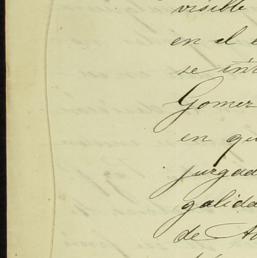 visible
en el e
se in
Gomer
en qu
juzgad
galida
de A